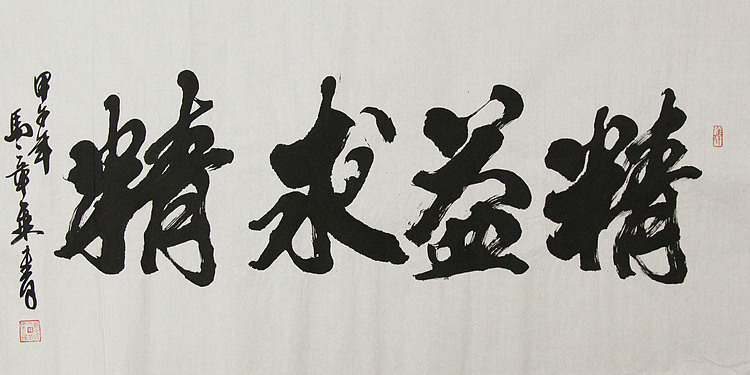 精益求精
甲午年
馬章乘書